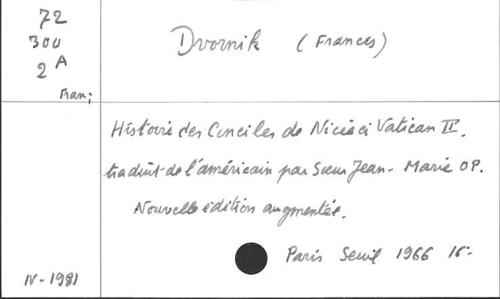 72
300
2 A
Fran;
Dvornik (Frances)
Histoire des Conciles de Nicée à Vatican II.
traduit de l'américain par Sœur Jean-Marie OP.
Nouvelle édition augmentée.
Paris Seuil 1966 16-
IV-1981